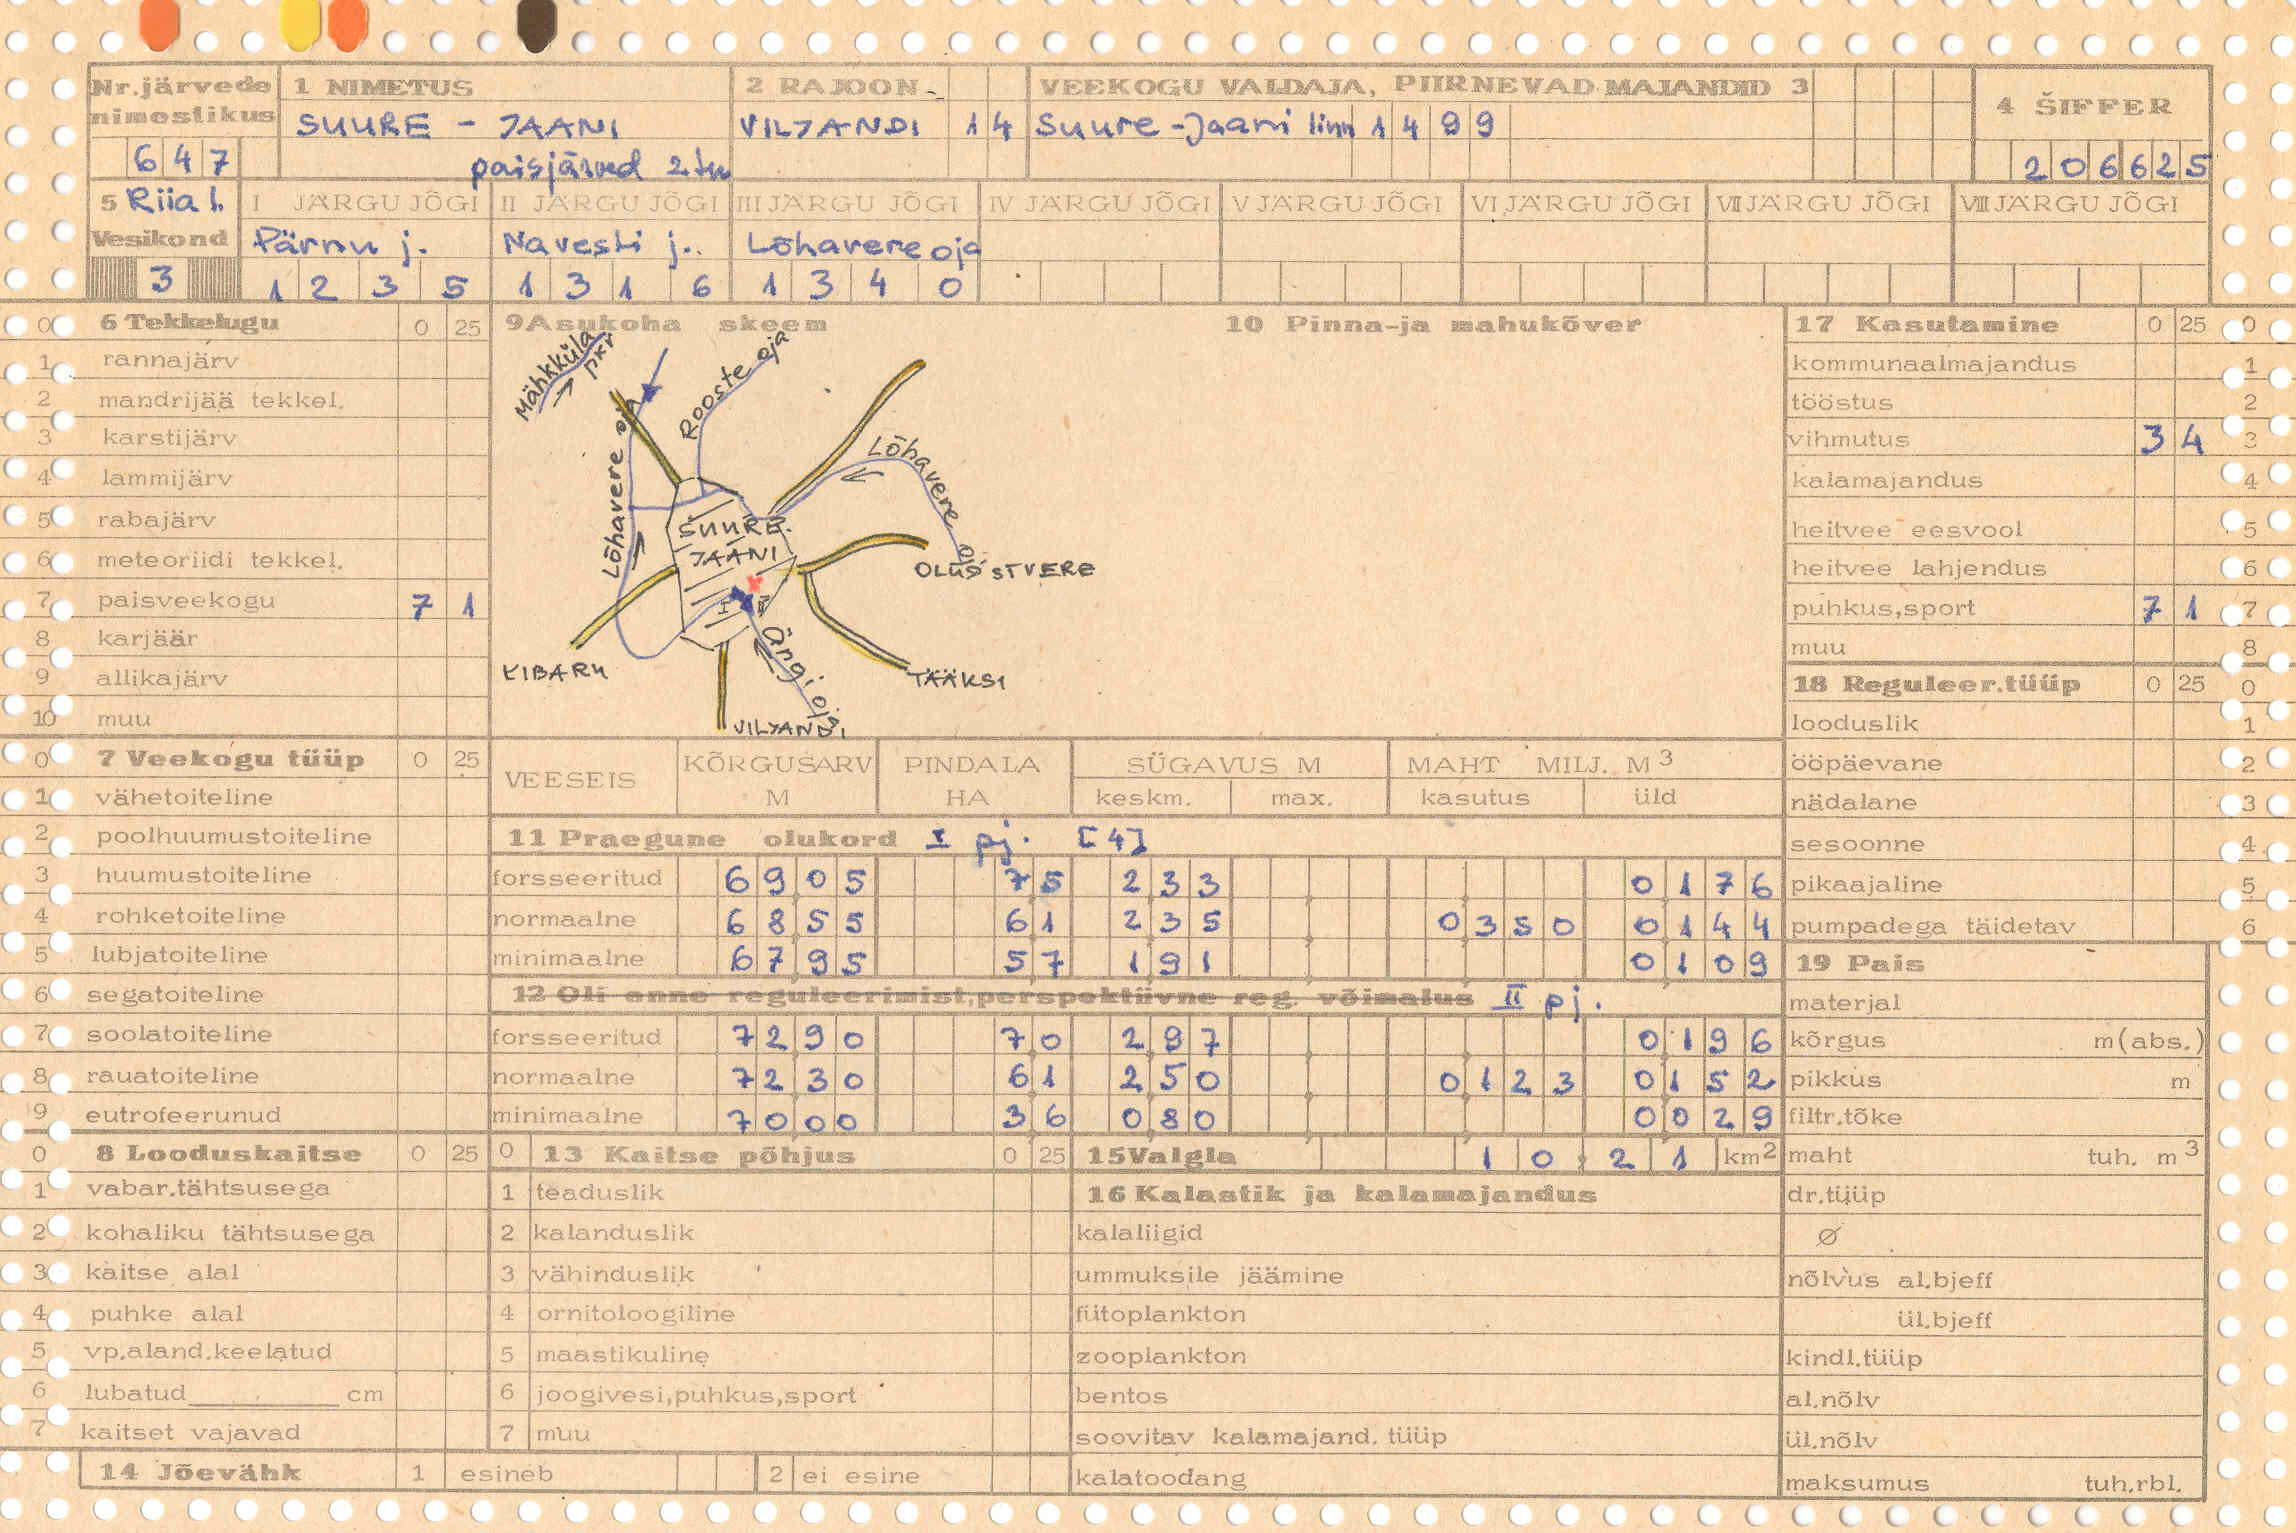 Nr.järvede nimestikus 1 NIMETUS 2 RAJOON VEEKOGU VALDAJA, PIIRNEVAD MAJANDID 3 4 ŠIFFER
SUURE - JAANI VILJANDI 14 Suure-Jaani linn 1499
647 paisjärved 2tk 206625
5 Riia l. I JÄRGU JÕGI II JÄRGU JÕGI III JÄRGU JÕGI IV JÄRGU JÕGI V JÄRGU JÕGI VI JÄRGU JÕGI VII JÄRGU JÕGI VIII JÄRGU JÕGI
Vesikond Pärnu j. Navesti j. Lõhavere oja
3 1235 1316 1340
0 6 Tekkelugu 0 25
1 rannajärv
2 mandrijää tekkel.
3 karstijärv
4 lammijärv
5 rabajärv
6 meteoriidi tekkel.
7 paisveekogu 7 1
8 karjäär
9 allikajärv
10 muu
9 Asukoha skeem
Mähkküla pkr
Lõhavere oja
Rooste oja
Lõhavere oj
SUURE-
JAANI
OLUSTVERE
I II
Ängi oja
KIBARU
TÄÄKSI
VILJANDI
10 Pinna-ja mahukõver
17 Kasutamine 0 25 0
kommunaalmajandus 1
tööstus 2
vihmutus 3 4 3
kalamajandus 4
heitvee eesvool 5
heitvee lahjendus 6
puhkus,sport 7 1 7
muu 8
18 Reguleer.tüüp 0 25 0
looduslik 1
ööpäevane 2
nädalane 3
sesoonne 4
pikaajaline 5
pumpadega täidetav 6
0 7 Veekogu tüüp 0 25
1 vähetoiteline
2 poolhuumustoiteline
3 huumustoiteline
4 rohketoiteline
5 lubjatoiteline
6 segatoiteline
7 soolatoiteline
8 rauatoiteline
9 eutrofeerunud
VEESEIS KÕRGUSARV M PINDALA HA SÜGAVUS M MAHT MILJ. M3
keskm. max. kasutus üld
11 Praegune olukord I pj. [4]
forsseeritud 6905 75 233 0176
normaalne 6855 61 235 0350 0144
minimaalne 6795 57 191 0109
12 Oli enne reguleerimist,perspektiivne reg. võimalus II pj.
forsseeritud 7290 70 297 0196
normaalne 7230 61 250 0123 0152
minimaalne 7000 36 080 0029
19 Pais
materjal
kõrgus m(abs.)
pikkus m
filtr.tõke
maht tuh. m3
dr.tüüp
Ø
nõlvus al.bjeff
ül.bjeff
kindl.tüüp
al.nõlv
ül.nõlv
maksumus tuh.rbl.
0 8 Looduskaitse 0 25
1 vabar.tähtsusega
2 kohaliku tähtsusega
3 kaitse alal
4 puhke alal
5 vp.aland.keelatud
6 lubatud cm
7 kaitset vajavad
0 13 Kaitse põhjus 0 25
1 teaduslik
2 kalanduslik
3 vähinduslik
4 ornitoloogiline
5 maastikuline
6 joogivesi,puhkus,sport
7 muu
15 Valgla 10,21 km2
16 Kalastik ja kalamajandus
kalaliigid
ummuksile jäämine
fütoplankton
zooplankton
bentos
soovitav kalamajand. tüüp
kalatoodang
14 Jõevähk 1 esineb 2 ei esine